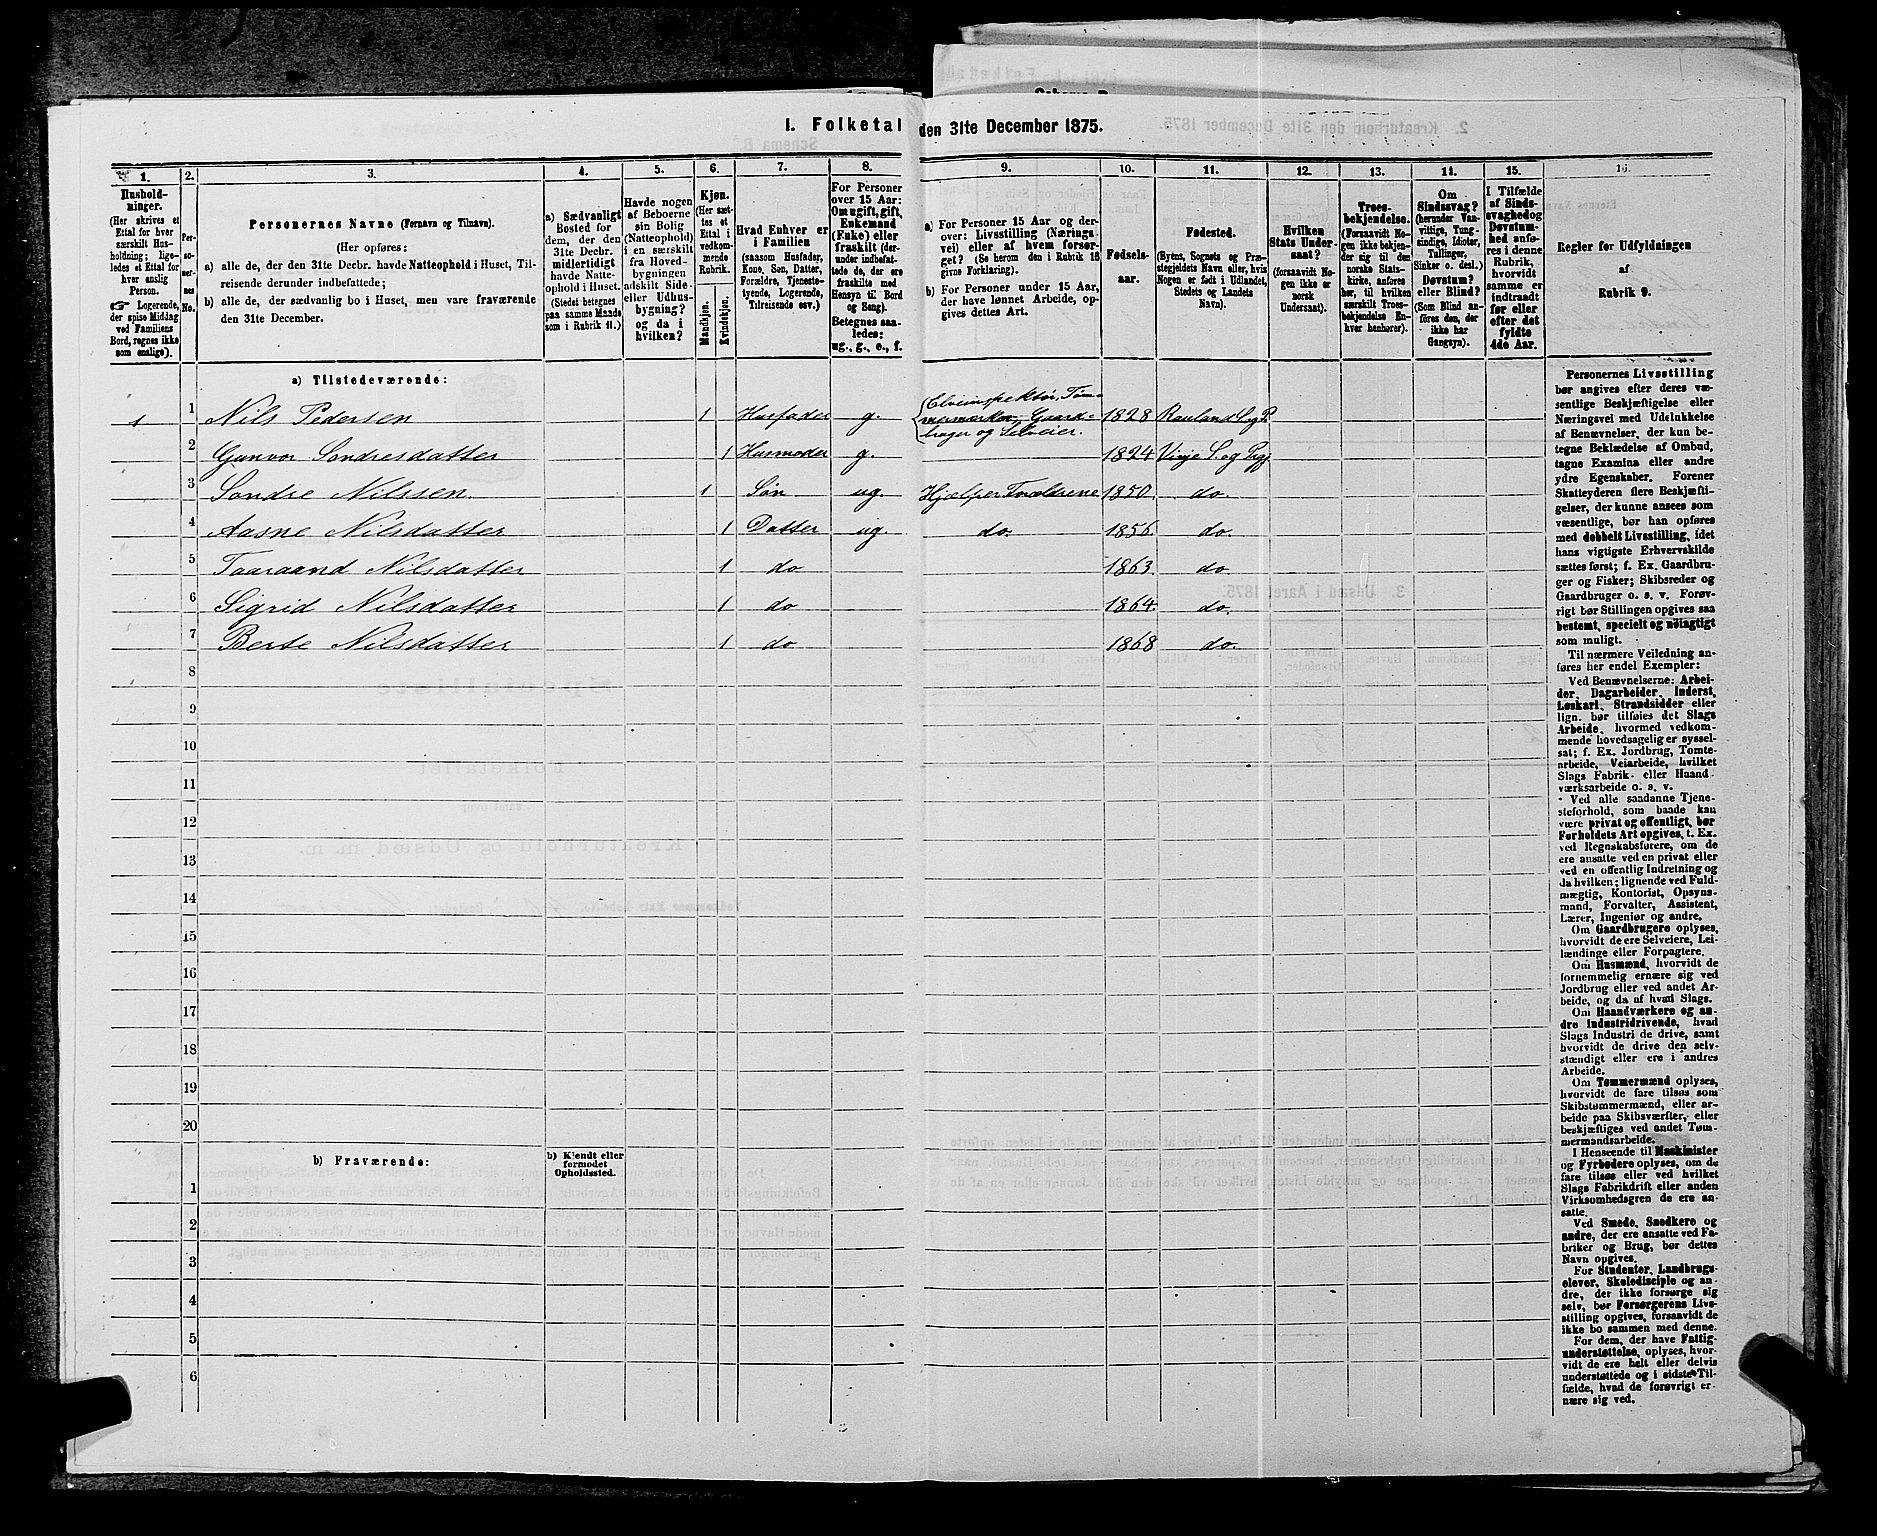 1. Folketal den 31te December 1875.
1. 2. 3. 4. 5. 6. 7. 8. 9. 10. 11. 12. 13. 14. 15. 16.
Hushold-
ninger.
(Her skrives et
Ettal for hver
særskilt Hus-
holdning; lige-
ledes et Ettal for
hver enslig
Person.
☞ Logerende,
der spise Middag
ved Familiens
Bord, regnes ikke
som enslige).
Per-
so-
ner-
nes
No.
Personernes Navne (Fornavn og Tilnavn).
(Her opføres:
a) alle de, der den 31te Decbr. havde Natteophold i Huset, Til-
reisende derunder indbefattede;
b) alle de, der sædvanlig bo i Huset, men vare fraværende
den 31te December.
a) Sædvanligt
Bosted for
dem, der den
31te Decbr.
midlertidigt
havde Natte-
ophold i Huset.
(Stedet betegnes
paa samme Maade
som i Rubrik 11.)
Havde nogen
af Beboerne
sin Bolig
(Natteophold)
i en særskilt
fra Hoved-
bygningen
adskilt Side-
eller Udhus-
bygning?
og da i
hvilken?
Kjøn.
(Her sæt-
tes et
Ettal i
vedkom-
mende
Rubrik.
Mandkjøn.
Kvindekjøn.
Hvad Enhver er
i Familien
(saasom Husfader,
Kone, Søn, Datter,
Forældre, Tjeneste-
tyende, Logerende,
Tilreisende osv.)
For Personer
over 15 Aar:
Om ugift, gift,
Enkemand
(Enke) eller
fraskilt (der-
under indbefat-
tede de, der ere
fraskilte med
Hensyn til Bord
og Seng).
Betegnes saa-
ledes:
ug., g., e., f.
a) For Personer 15 Aar og der-
over: Livsstilling (Nærings-
vei) eller af hvem forsør-
get? (Se herom den i Rubrik 16
givne Forklaring).
b) For Personer under 15 Aar,
der have lønnet Arbeide, op-
gives dettes Art.
Fødsels-
aar.
Fødested.
(Byens, Sognets og Præ-
stegjeldets Navn eller, hvis
Nogen er født i Udlandet,
Stedets og Landets
Navn).
Hvilken
Stats Under-
saat?
(forsaavidt No-
gen ikke er
norsk
Undersaat).
Troes-
bekjendelse.
(Forsaavidt No-
gen ikke bekjen-
der sig til den
norske Stats-
kirke, anføres
her, til hvilken
særskilt Troes-
bekjendelse En-
hver henhører).
Om
Sindssvag?
(herunder Van-
vittige, Tung-
sindige, Idioter,
Tullinger,
Sinker o. desl.)
Døvstum?
eller Blind?
(Som Blind an-
føres den, der
ikke har
Gangsyn).
I Tilfælde
af Sinds-
svaghed og
Døvstum-
hed anfø-
res i denne
Rubrik,
hvorvidt
samme er
indtraadt
før eller
efter det
fyldte
4de Aar.
Regler for Udfyldningen
af
Rubrik 9.
a) Tilstedeværende:
1 1 Nils Pedersen 1 Husfader g. Elveinspektør, Tøm-
mermærker, Gaard-
bruger og Selveier. 1828 Rauland S. og P.
2 Gunvor Sondresdatter 1 Husmoder g. 1824 Vinje S. og Prgj.
3 Sondre Nilssen. 1 Søn ug. Hjælper Forældrene 1850. do.
4 Aasne Nilsdatter 1 Datter ug. do. 1856. do.
5 Taaraand Nilsdatter 1 do 1863. do.
6 Sigrid Nilsdatter 1 do 1864. do.
7 Berte Nilsdatter 1 do 1868 do.
8
9
10
11
12
13
14
15
16
17
18
19
20
b) Fraværende:
b) Kjendt eller
formodet
Opholdssted.
1
2
3
4
5
6
Personernes Livsstilling
bør angives efter deres væ-
sentlige Beskjæftigelse eller
Næringsvei med Udelukkelse
af Benævnelser, der kun be-
tegne Beklædelse af Ombud,
tagne Examina eller andre
ydre Egenskaber. Forener
Skatteyderen flere Beskjæfti-
gelser, der kunne ansees som
væsentlige, bør han opføres
med dobbelt Livsstilling, idet
hans vigtigste Erhvervskilde
sættes først; f. Ex. Gaardbru-
ger og Fisker; Skibsreder og
Gaardbruger o. s. v. Forøv-
rigt bør Stillingen opgives saa
bestemt, specielt og nøiagtigt
som muligt.
Til nærmere Veiledning an-
føres her endel Exempler:
Ved Benævnelserne: Arbei-
der, Dagarbeider, Inderst,
Løskarl, Strandsidder eller
lign. bør tilføies det Slags
Arbeide, hvormed vedkom-
mende hovedsagelig er syssel-
sat; f. Ex. Jordbrug, Tomte-
arbeide, Veiarbeide, hvilket
Slags Fabrik- eller Haand-
værksarbeide o. s. v.
Ved alle saadanne Tjene-
steforhold, som baade kan
være privat og offentligt, bør
Forholdets Art opgives, t. Ex.
ved Regnskabsførere, om de
ere ansatte ved en privat eller
ved en offentlig Indretning og
da hvilken; lignende ved Fuld-
mægtig, Kontorist, Opsyns-
mand, Forvalter, Assistent,
Lærer, Ingeniør og andre.
Om Gaardbrugere oplyses,
hvorvidt de ere Selveiere, Lei-
lændinge eller Forpagtere.
Om Husmænd, hvorvidt de
fornemmelig ernære sig ved
Jordbrug eller ved andet Ar-
beide, og da af hvad Slags.
Om Haandværkere og an-
dre Industridrivende, hvad
Slags Industri de drive, samt
hvorvidt de drive den selv-
stændigt eller ere i andres
Arbeide.
Om Tømmermænd oplyses,
hvorvidt de fare tilsøs som
Skibstømmermænd, eller ar-
beide paa Skibsværfter, eller
beskjæftiges ved andet Tøm-
mermandsarbeide.
I Henseende til Maskinister
og Fyrbødere oplyses, om de
fare tilsøs eller ved hvilket
Slags Fabrikdrift eller anden
Virksomhedsgren de ere an-
satte.
Ved Smede, Snedkere og
andre, der ere ansatte ved Fa-
briker og Brug, bør dettes
Navn opgives.
For Studenter, Landbrugs-
elever, Skoledisciple og an-
dre, der ikke forsørge sig
selv, bør Forsørgerens Livs-
stilling opgives, forsaavidt de
ikke bo sammen med denne.
For dem, der have Fattig-
understøttelse, oplyses, hvor-
vidt de ere helt eller delvis
understøttede og i sidste Til-
fælde, hvad de forøvrigt er-
nære sig ved.